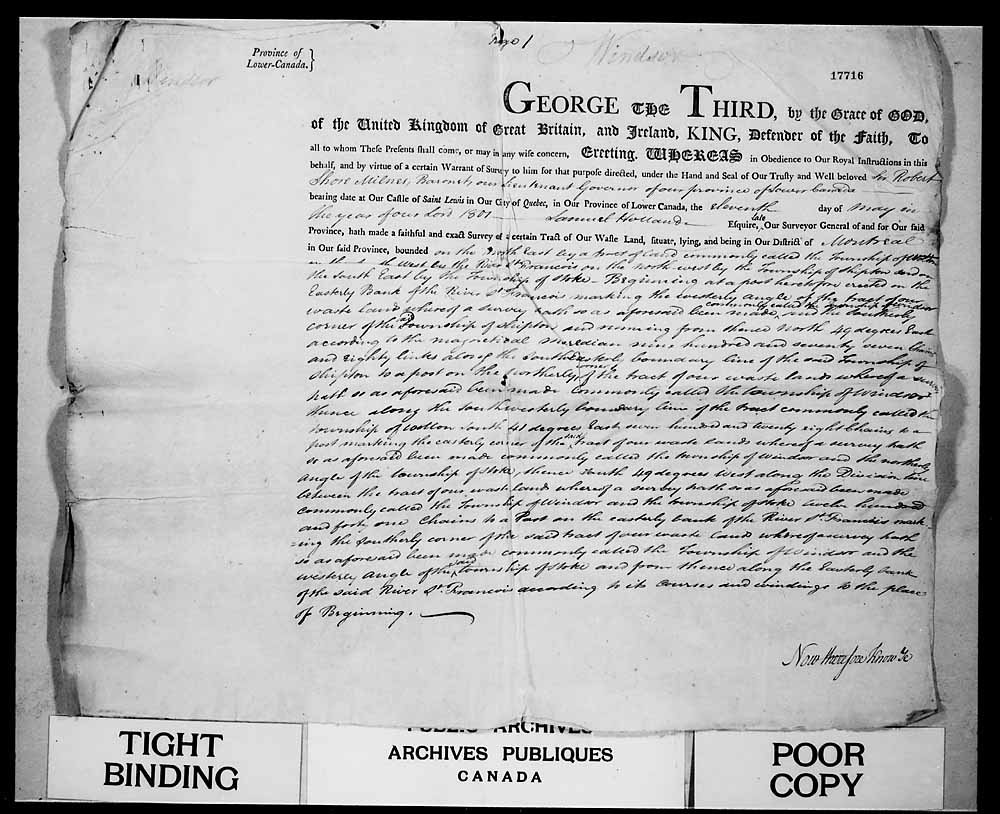 Page 1
Windsor
Windsor
Province of
Lower-Canada.}
17716
GEORGE THE THIRD, by the Grace of GOD,
of the United Kingdom of Great Britain, and Ireland, KING, Defender of the Faith, To
all to whom These Presents shall come, or may in any wise concern, Greeting. WHEREAS in Obedience to Our Royal Instructions in this
behalf, and by virtue of a certain Warrant of Survey to him for that purpose directed, under the Hand and Seal of Our Trusty and Well beloved Sir Robert
Shore Milnes, Baronet, our Lieutenant Governor of our province of Lower Canada
bearing date at Our Castle of Saint Lewis in Our City of Quebec, in Our Province of Lower Canada, the eleventh day of May in
the year of our Lord 1801 Samuel Holland Esquire, late Our Surveyor General of and for Our said
Province, hath made a faithful and exact Survey of a certain Tract of Our Waste Land, situate, lying, and being in Our District of Montreal
in Our said Province, bounded on the North East by a tract of land commonly called the Township of
West by the River St Francois on the north west by the Township of Shipton and on
the South East by the Township of Stoke - Beginning at a post heretofore erected on the
Easterly Bank of the River St Francois marking the westerly angle of the tract of our
waste land whereof a survey hath so as aforesaid been made, commonly called the Township of Windsor and the Southerly
corner of the said Township of Shipton and running from thence North 49 degrees East
according to the magnetical meridian nine hundred and seventy seven chains
and eighty links along the Southeasterly boundary line of the said Township of
Shipton to a post on the Northerly corner of the tract of our waste lands whereof a survey
hath so as aforesaid been made commonly called the township of Windsor
thence along the southwesterly boundary line of the tract commonly called the
township of Wotton South 41 degrees East seven hundred and twenty eight Chains to a
post marking the easterly corner of the said tract of our waste lands whereof a survey hath
so as aforesaid been made commonly called the township of Windsor and the northerly
Angle of the township of Stoke, thence South 49 degrees West along the Division line
between the tract of our waste land whereof a survey hath so as aforesaid been made
commonly called the Township of Windsor and the township of Stoke twelve hundred
and forty one Chains to a Post on the easterly bank of the River St Francis mark-
ing the southerly corner of the said tract of our waste land whereof a survey hath
so as aforesaid been made commonly called the Township of Windsor and the
westerly Angle of the said township of Stoke and from thence along the Easterly bank
of the said River St Francois according to its courses and windings to the place
of Beginning.
Now therefore Know Ye
TIGHT
BINDING
PUBLIC ARCHIVES
ARCHIVES PUBLIQUES
CANADA
POOR
COPY